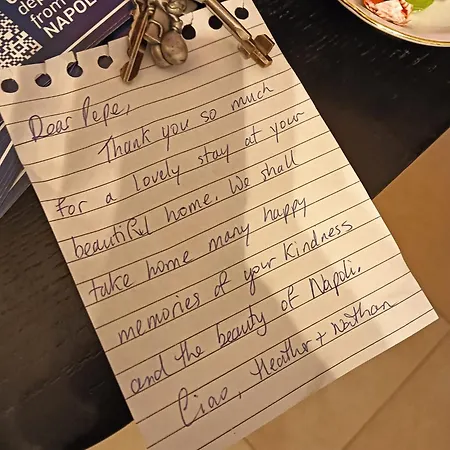 dep
from
NAPOL
Dear Pepe,
Thank you so much
for a lovely stay at your
beautiful home. We shall
take home many happy
memories of your kindness
and the beauty of Napoli.
Ciao, Heather + Nathan